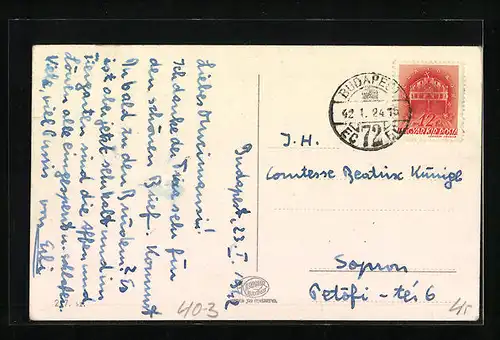 Budapest, 23. I. 1942
Liebes
Ich danke Dir sehr für
den schönen Brief. Kommst
Du bald zu den Brüdern? Es
ist aber jetzt sehr kalt und im
Tiergarten sind die Affen und
Löwen alle eingesperrt u. schlafen.
Viele, viel Bussis von
BUDAPEST
42 1. 24 15
72
12
MAGYAR KIR. POSTA
I. H.
Comtesse Beatrix Künigl
Sopron
Petőfi - tér 6
40-3
45